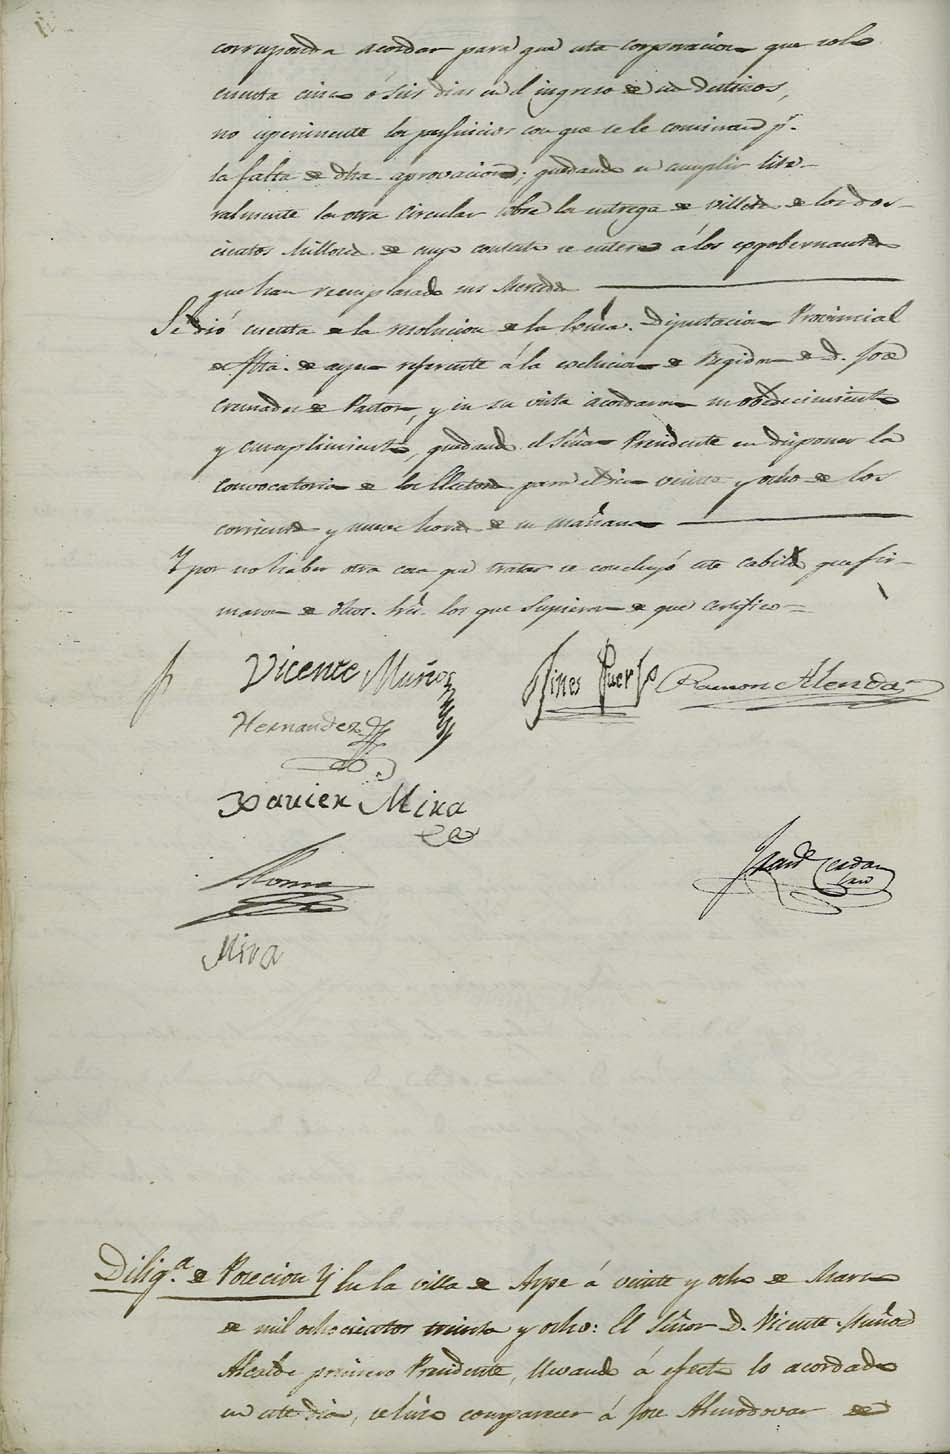 corresponda acordar para que esta corporacion que solo
cuenta cinco ó seis dias en el ingreso de sus destinos,
no esperimente los perjuicios con que se le conminan pr.
la falta de dha. aprovacion; quedando en cumplir lite-
ralmente la otra circular sobre la entrega de villetes de los dos-
cientos Millones de cuyo contesto se entere á los exgobernantes
que han reemplazado sus Mercedes
Se dió cuenta de la resolucion de la Exma. Diputacion Provincial
de fha. de ayer referente á la esclucion de Regidor de D. José
Cremades de Pastor, y en su vista acordaron su obedecimiento
y cumplimiento, quedando el Señor Presidente en disponer la
convocatoria de los Electores para el dia veinte y ocho de los
corrientes y nueve horas de su mañana
Y por no haber otra cosa que tratar se concluyó este cabildo que fir-
maron de dhos. Sres. los que supieron de que certifico=
Vicente Muñoz
Gines Puerto
Ramon Alenda
Hernandez
Xavier Mira
Roma
Mira
Dilig.a de Posecion } En la villa de Aspe á veinte y ocho de Marzo
de mil ochocientos treinta y ocho: El Señor D. Vicente Muñoz
Alcalde primero Presidente, llevando á efecto lo acordado
en este dia, se hizo comparecer á Jose Almodovar de